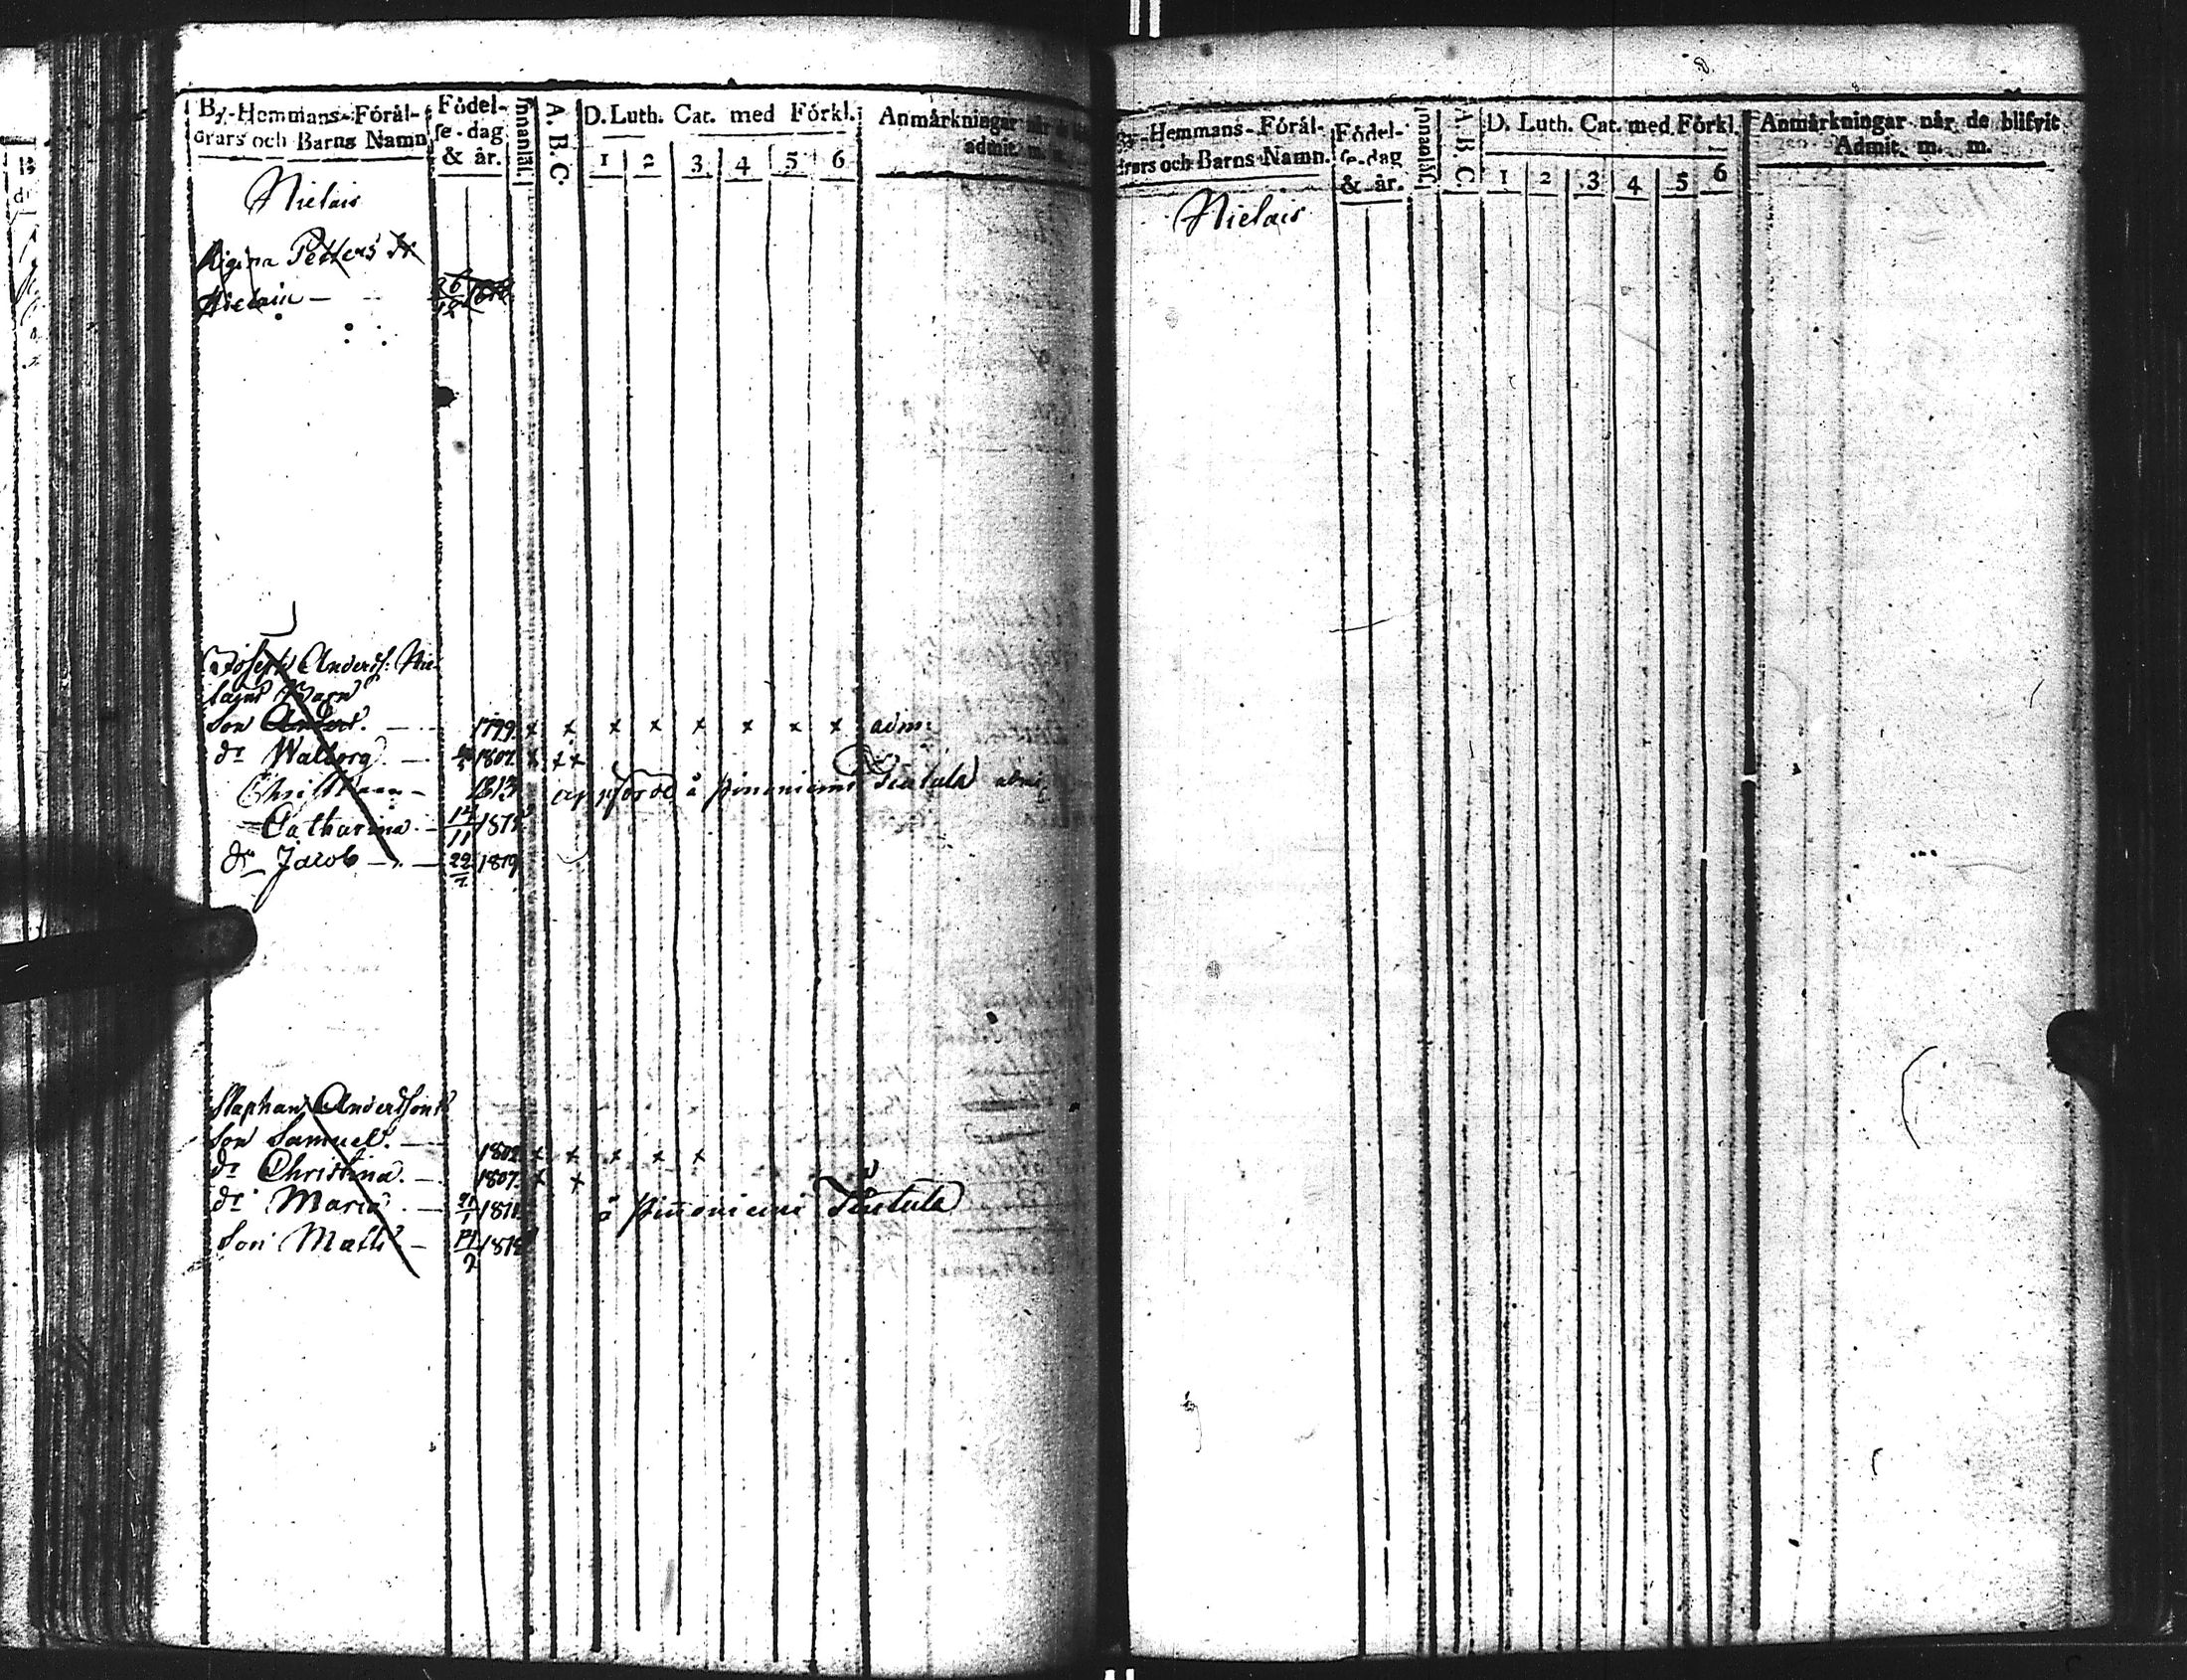 By-Hemmans-Förål-
drars och Barns Namn
Födel-
se-dag
& år.
Innanläs.
A. B. C.
D. Luth. Cat. med Förkl.
1 2 3 4 5 6
Anmärkningar
admit. m. m.
Nielais
Regina Petters dr
26
12
Joseph Anders: Nie
Barn
Son Anders. — 1799 x x x x x x x x adm:
dr Walborg. — 1807. x x x
Christian — 1813 uppförde å Pinoniemi
Catharina — 12/11 1817
dr Jacob — 22/7 1819
Staphan Anderssons
Son Samuel. — 1802 x x x x x
dr Christina. — 1807. x x
dr Maria. — 21/1 1811 å Pinnoniemi
Son Matts — 1818
By-Hemmans-Förål-
drars och Barns Namn.
Födel-
se-dag
& år.
Innanläs.
A. B. C.
D. Luth. Cat. med Förkl.
1 2 3 4 5 6
Anmärkningar når de blifvit
Admit. m. m.
Nielais